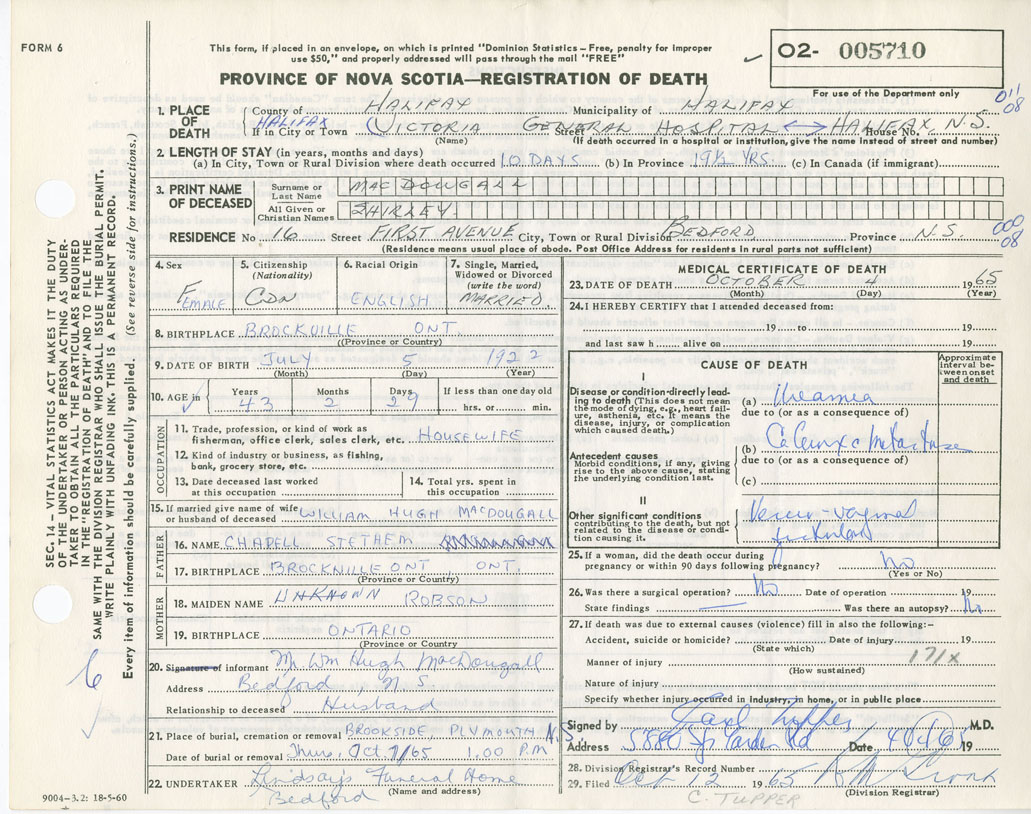 FORM 6
This form, if placed in an envelope, on which is printed "Dominion Statistics – Free, penalty for improper
use $50," and properly addressed will pass through the mail "FREE"
PROVINCE OF NOVA SCOTIA—REGISTRATION OF DEATH
O2- 005710
For use of the Department only
011
08
SEC. 14 – VITAL STATISTICS ACT MAKES IT THE DUTY
OF THE UNDERTAKER OR PERSON ACTING AS UNDER-
TAKER TO OBTAIN ALL THE PARTICULARS REQUIRED
IN THE "REGISTRATION OF DEATH" AND TO FILE THE
SAME WITH THE DIVISION REGISTRAR WHO SHALL ISSUE THE BURIAL PERMIT.
WRITE PLAINLY WITH UNFADING INK. THIS IS A PERMANENT RECORD.
Every item of information should be carefully supplied. (See reverse side for instructions.)
6
1. PLACE OF DEATH
County of HALIFAX Municipality of HALIFAX
HALIFAX
If in City or Town VICTORIA GENERAL HOSPITAL Street HALIFAX House No. N.S.
(Name) (If death occurred in a hospital or institution, give the name instead of street and number)
2. LENGTH OF STAY (in years, months and days)
(a) In City, Town or Rural Division where death occurred 10 DAYS (b) In Province 19½ YRS. (c) In Canada (if immigrant)
3. PRINT NAME OF DECEASED
Surname or Last Name MACDOUGALL
All Given or Christian Names SHIRLEY
RESIDENCE No. 16 Street FIRST AVENUE City, Town or Rural Division BEDFORD Province N.S.
000
08
(Residence means usual place of abode. Post Office Address for residents in rural parts not sufficient)
4. Sex FEMALE
5. Citizenship (Nationality) CDN
6. Racial Origin ENGLISH
7. Single, Married, Widowed or Divorced (write the word) MARRIED
8. BIRTHPLACE BROCKVILLE ONT.
(Province or Country)
9. DATE OF BIRTH JULY 5 1922
(Month) (Day) (Year)
10. AGE in Years 43 Months 2 Days 29 If less than one day old hrs. or min.
OCCUPATION
11. Trade, profession, or kind of work as
fisherman, office clerk, sales clerk, etc. HOUSEWIFE
12. Kind of industry or business, as fishing,
bank, grocery store, etc.
13. Date deceased last worked
at this occupation
14. Total yrs. spent in
this occupation
15. If married give name of wife
or husband of deceased WILLIAM HUGH MACDOUGALL
FATHER
16. NAME CHAPELL STETHEM
17. BIRTHPLACE BROCKVILLE ONT, ONT.
(Province or Country)
MOTHER
18. MAIDEN NAME UNKNOWN ROBSON
19. BIRTHPLACE ONTARIO
(Province or Country)
20. Signature of informant Mr Wm Hugh MacDougall
Address Bedford, N.S.
Relationship to deceased Husband
21. Place of burial, cremation or removal BROOKSIDE, PLYMOUTH N.S.
Date of burial or removal Thurs, Oct 7/65 1.00 P.M
22. UNDERTAKER Lindsay's Funeral Home
(Name and address)
Bedford
9004–3.2: 18-5-60
MEDICAL CERTIFICATE OF DEATH
23. DATE OF DEATH OCTOBER 4 1965
(Month) (Day) (Year)
24. I HEREBY CERTIFY that I attended deceased from:
19 to 19
and last saw h alive on 19
CAUSE OF DEATH
Approximate interval between onset and death
I
Disease or condition directly lead-
ing to death (This does not mean
the mode of dying, e.g., heart fail-
ure, asthenia, etc. It means the
disease, injury, or complication
which caused death.)
(a) Uraemia
due to (or as a consequence of)
Antecedent causes
Morbid conditions, if any, giving
rise to the above cause, stating
the underlying condition last.
(b) Ca Cervix c Metastases
due to (or as a consequence of)
(c)
II
Other significant conditions
contributing to the death, but not
related to the disease or condi-
tion causing it.
25. If a woman, did the death occur during
pregnancy or within 90 days following pregnancy? No
(Yes or No)
26. Was there a surgical operation? No Date of operation 19
State findings Was there an autopsy? No
27. If death was due to external causes (violence) fill in also the following:–
Accident, suicide or homicide? Date of injury 19
(State which)
171X
Manner of injury
(How sustained)
Nature of injury
Specify whether injury occurred in industry, in home, or in public place
Signed by Carl Tupper M.D.
Address 5880 Sp Garden Rd Date 4 Oct 65 19
28. Division Registrar's Record Number
29. Filed Oct 12 1965
(Division Registrar)
C. TUPPER